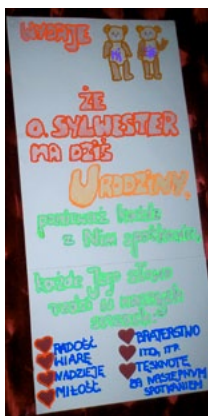 WYDAJE
ŻE
O. SYLWESTER
MA DZIŚ
URODZINY,
ponieważ każde
z Nim spotkanie,
każde Jego słowo
rodzi w naszych
sercach:
RADOŚĆ
WIARĘ
NADZIEJĘ
MIŁOŚĆ
BRATERSTWO
ITD, ITP.
TĘSKNOTĘ
ZA NASTĘPNYM
SPOTKANIEM